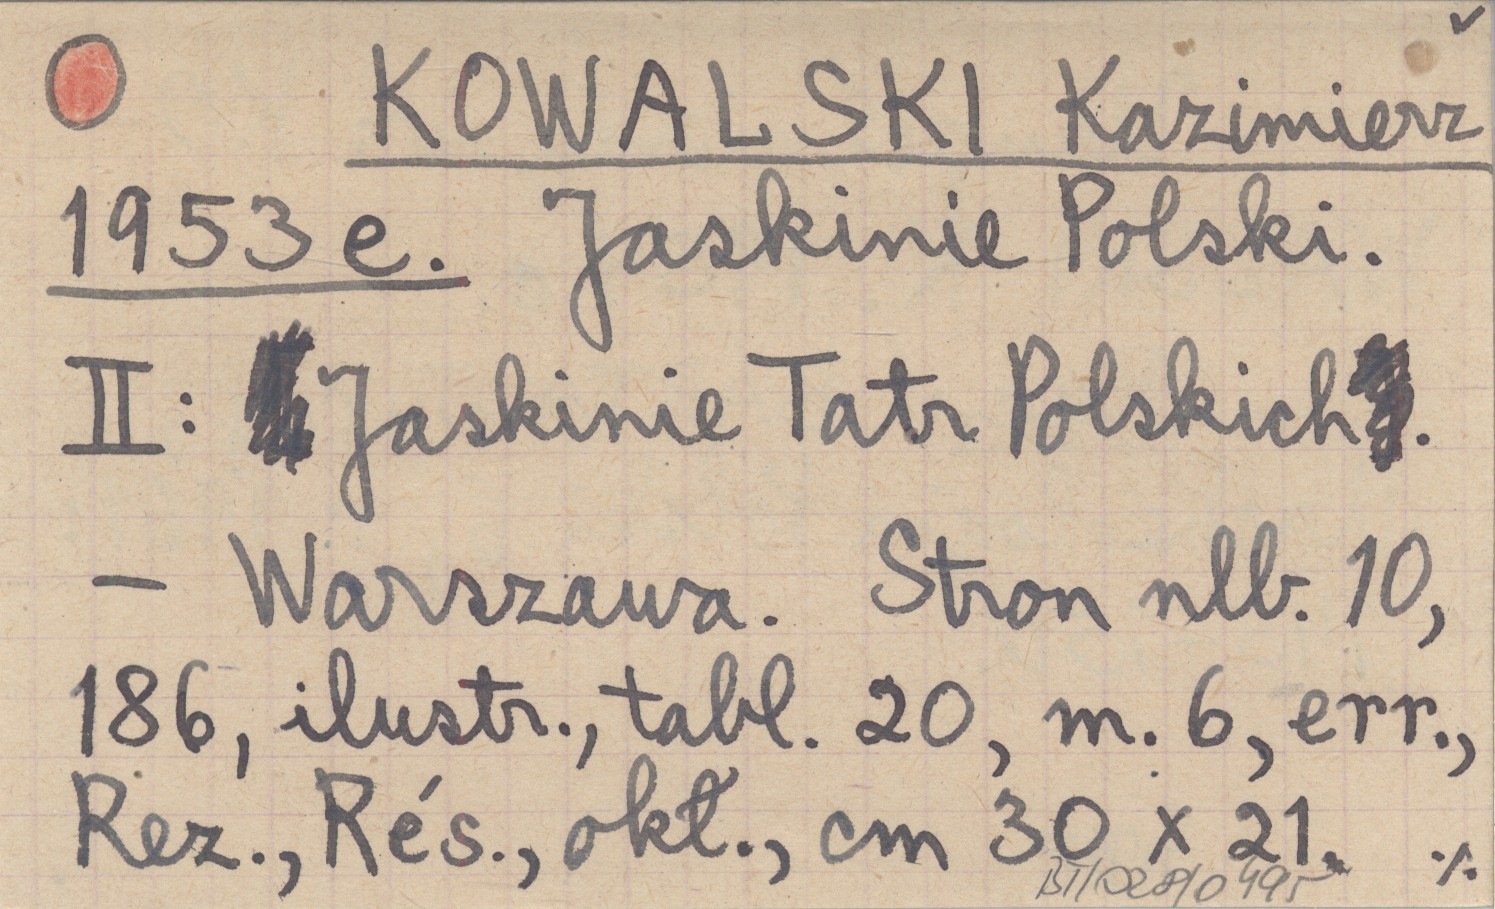 KOWALSKI Kazimierz
1953e. Jaskinie Polski.
II: Jaskinie Tatr Polskich.
— Warszawa. Stron nlb. 10,
186, ilustr., tabl. 20, m. 6, err.,
Rez., Rés., okł., cm 30 x 21. ·/·